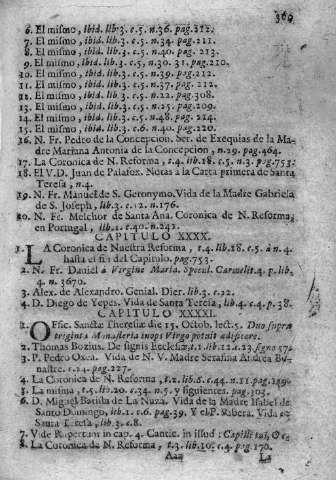 369
6. El mismo, ibid. lib. 3. c. 5. n. 36. pag. 212.
7. El mismo, ibid. lib. 3. c. 5. n. 34. pag. 211.
8. El mismo, ibid. lib. 3. c. 5. n. 40. pag. 213.
9. El mismo, ibid. lib. 3. c. 5. n. 30. 31. pag. 210.
10. El mismo, ibid. lib. 3. c. 5. n. 39. pag. 212.
11. El mismo, ibid. lib. 3. c. 5. n. 37. pag. 212.
12. El mismo, ibid. lib. 3. c. 5. n. 22. pag. 308.
13. El mismo, ibid. lib. 3. c. 5. n. 25. pag. 209.
14. El mismo, ibid. lib. 3. c. 5. n. 48. pag. 214.
15. El mismo, ibid. lib. 3. c. 6. n. 40. pag. 220.
16. N. Fr. Pedro de la Concepcion, Ser. de Exequias de la Ma-
dre Mariana Antonia de la Concepcion, n. 29. pag. 464.
17. La Coronica de N. Reforma, t. 4. lib. 18. c. 5. n. 3. pag. 753.
18. El V. D. Juan de Palafox. Notas a la Carta primera de Santa
Teresa, n. 4.
19. N. Fr. Manuel de S. Geronymo. Vida de la Madre Gabriela
de S. Joseph, lib. 3. c. 12. n. 176.
20. N. Fr. Melchor de Santa Ana. Coronica de N. Reforma,
en Portugal, lib. 1. c. 40. n. 242.
CAPITULO XXXX.
1. LA Coronica de Nuestra Reforma, t. 4. lib. 18. c. 5. à n. 4.
hasta el fin del Capitulo. pag. 753.
2. N. Fr. Daniel à Virgine Maria. Specul. Carmelit. 4. p. lib.
4. n. 3670.
3. Alex. de Alexandro. Genial. Dier. lib. 3. c. 22.
4. D. Diego de Yepes. Vida de Santa Teresa, lib. 4. c. 4. p. 38.
CAPITULO XXXXI.
1. OFfic. Sanctæ Theresiæ die 15. Octob. lect. 5. Duo supra
triginta Monasteria inops Virgo potuit ædificare.
2. Thomas Bozius. De signis Ecclesiæ, t. 1. lib. 12. c. 23. signo 57.
3. P. Pedro Oxea. Vida de N. V. Madre Serafina Andrea Bu-
nastre. c. 24. pag. 227.
4. La Coronica de N. Reforma, t. 2. lib. 6. c. 44. n. 11. pag. 149.
5. La misma, t. 5. lib. 20. c. 34. n. 5. y siguientes. pag. 303.
6. D. Miguel Batista de La Nuza. Vida de la Madre Isabel de
Santo Domingo, lib. 1. c. 6. pag. 39. Y el P. Ribera. Vida de
Santa Teresa, lib. 3. c. 8.
7. Vide Rupertum in cap. 4. Cantic. in illud: Capilli tui, &c.
8. La Coronica de N. Reforma, t. 3. lib. 10. c. 4. pag. 170.
Aaa La